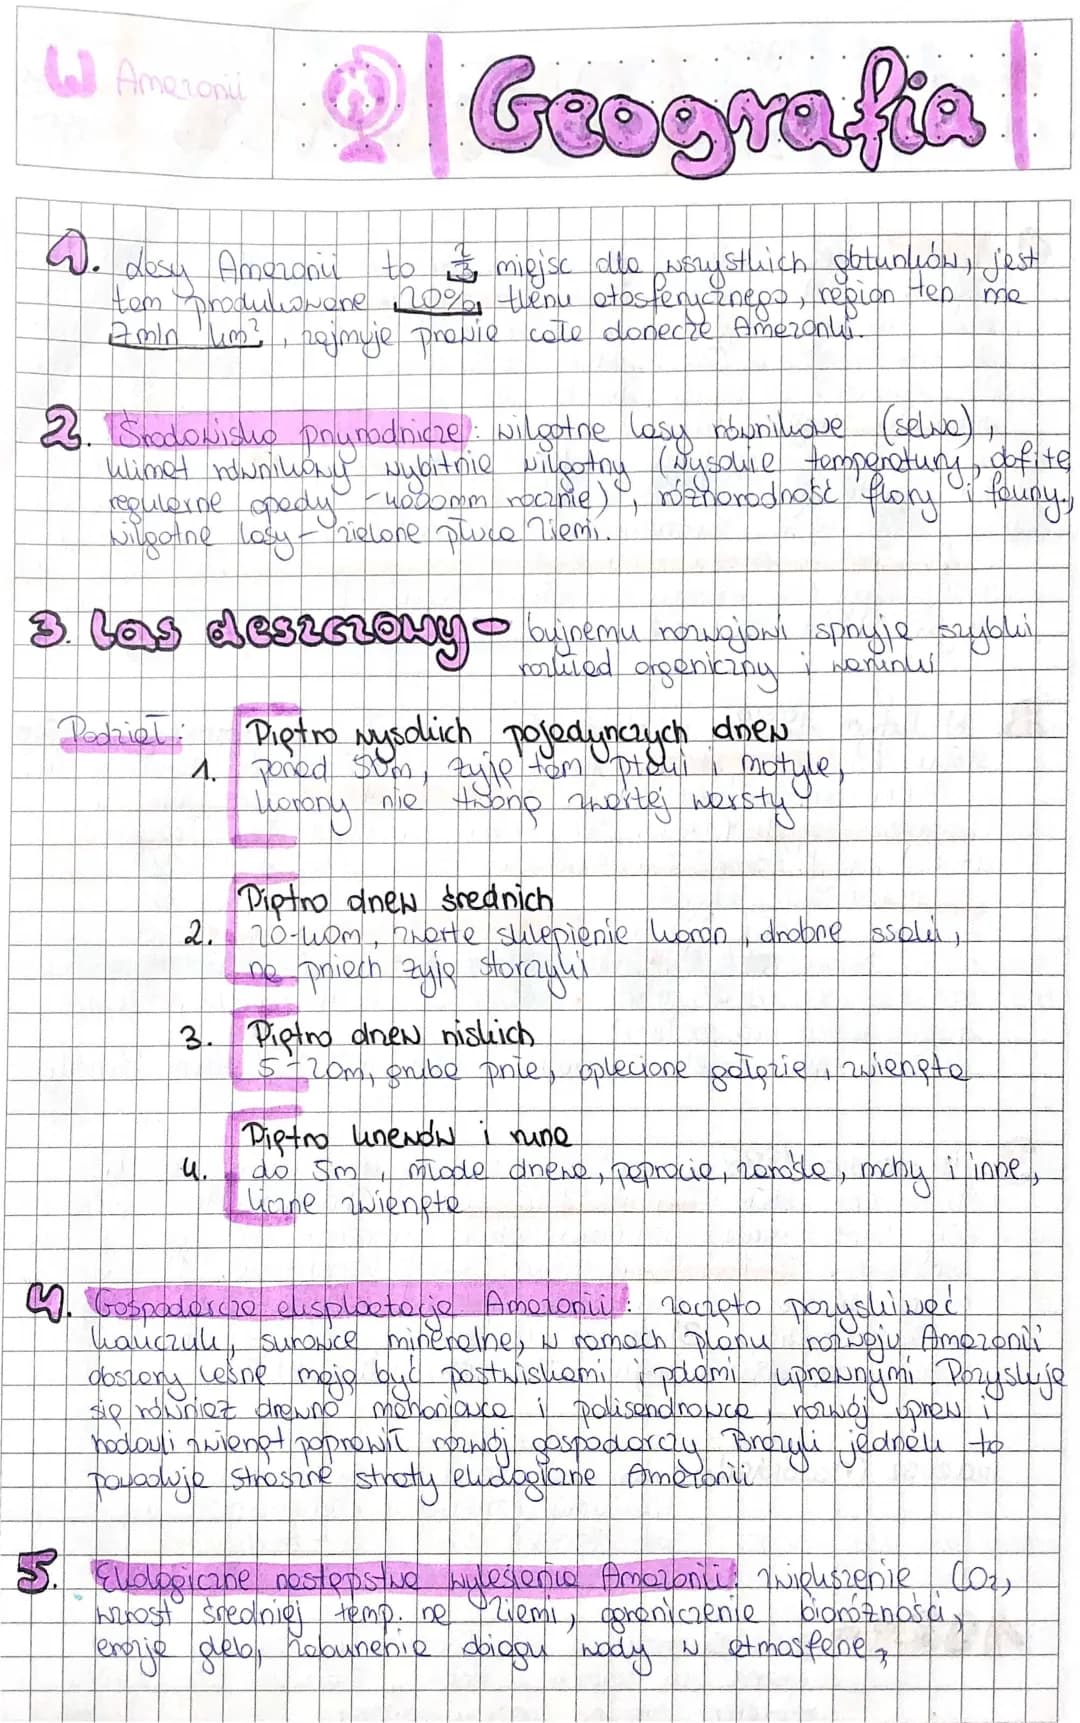 W Amazonii
Geografia
1. Lasy Amazonii to 2/3 miejsc dla wszystkich gatunków, jest
tam produkowane 20% tlenu atosferycznego, region ten ma
7mln km², zajmuje prawie całe dorzecze Amazonki.
2. Środowisko przyrodnicze: wilgotne lasy równikowe (selwa),
klimat równikowy wybitnie wilgotny (wysokie temperatury, obfite
regularne opady - 4000mm rocznie), różnorodność flory i fauny,
wilgotne lasy - zielone płuca Ziemi.
3. Las deszczowy - bujnemu rozwojowi sprzyja szybki
rozkład organiczny i warunki
Podział:
Piętro wysokich pojedynczych drzew
1. ponad 50m, żyją tam ptaki i motyle,
korony nie tworzą zwartej warsty
Piętro drzew średnich
2. 20-40m, zwarte sklepienie koron, drobne ssaki,
na pniach żyją storczyki
3. Piętro drzew niskich
5-20m, grube pnie, oplecione gałęzie, zwierzęta
Piętro krzewów i runa
4. do 5m, młode drzewa, paprocie, zarośla, mchy i inne,
liczne zwierzęta
4. Gospodarcza eksploatacja Amazonii: zaczęto pozyskiwać
kauczuk, surowce mineralne, w ramach planu rozwoju Amazonii
obszary leśne mają być pastwiskami i polami uprawnymi. Pozyskuje
się również drewno mahoniowce i palisandrowce, rozwój upraw i
hodowli zwierząt poprawił rozwój gospodarczy Brazyli jednak to
powoduje straszne straty ekologiczne Amazonii
5. Ekologiczne następstwa wylesienia Amazonii: zwiększenie CO2,
wzrost średniej temp. na Ziemi, ograniczenie bioróżności,
erozje gleb, zaburzenie obiegu wody w atmosferze